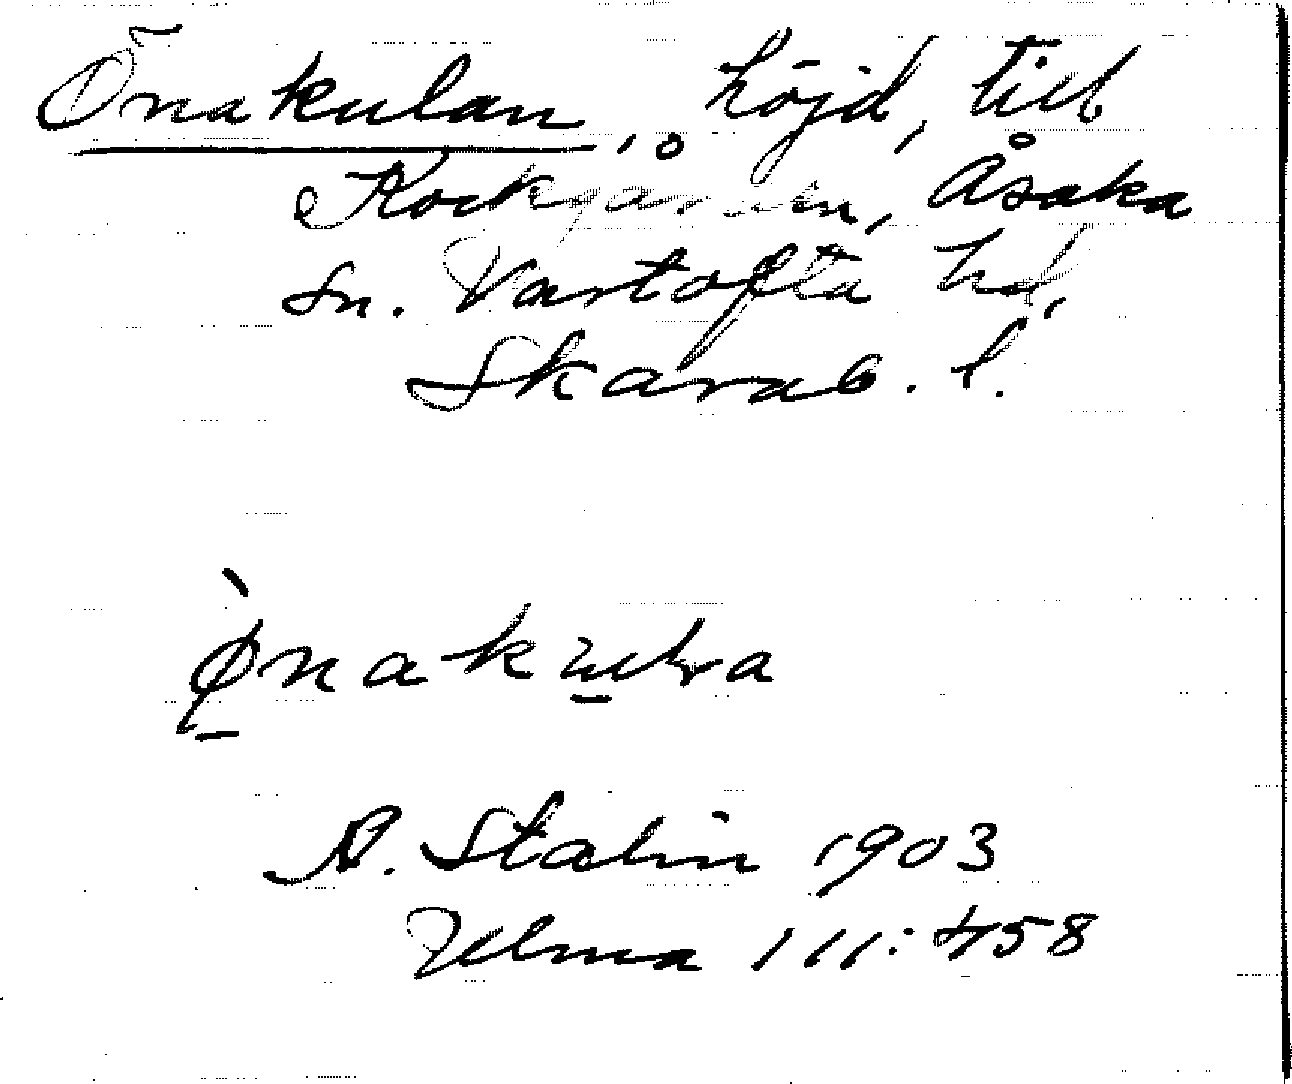 Önakulan, höjd, till
Kockgården, Åsaka
sn. Vartofta hd,
Skarab. l.
A. Stalin 1903
Ulma 111:458